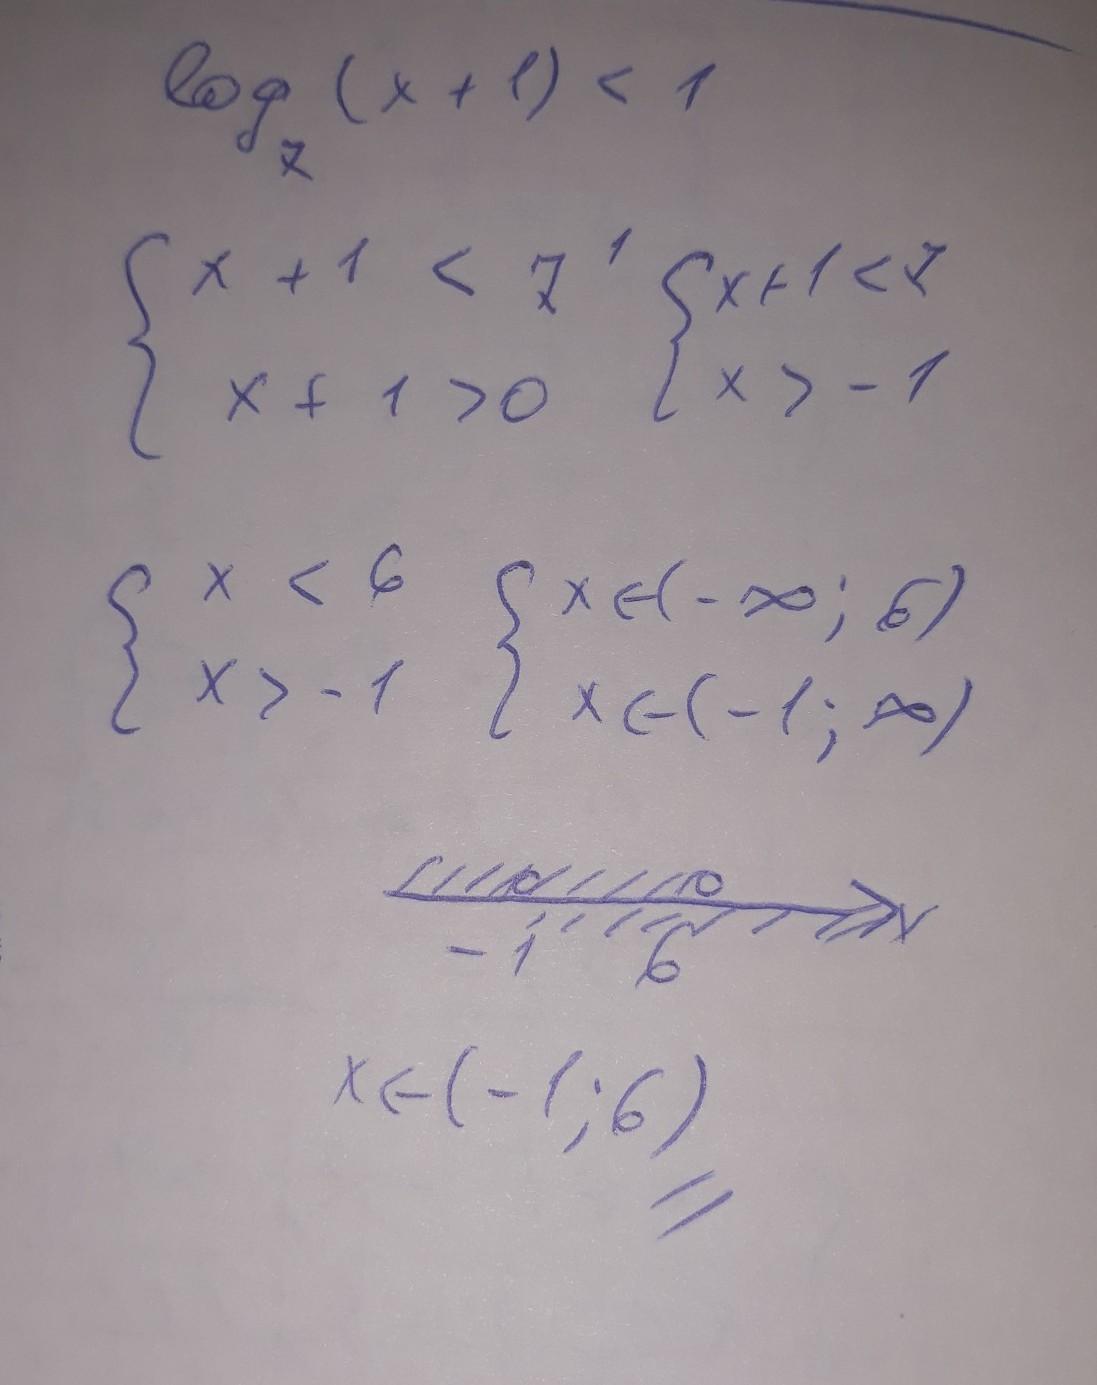 log₇(x+1)<1
{x+1<7¹ {x+1<7
x+1>0 x>-1
{x<6 {x∈(-∞;6)
x>-1 x∈(-1;∞)
-1 6 x
x∈(-1;6)